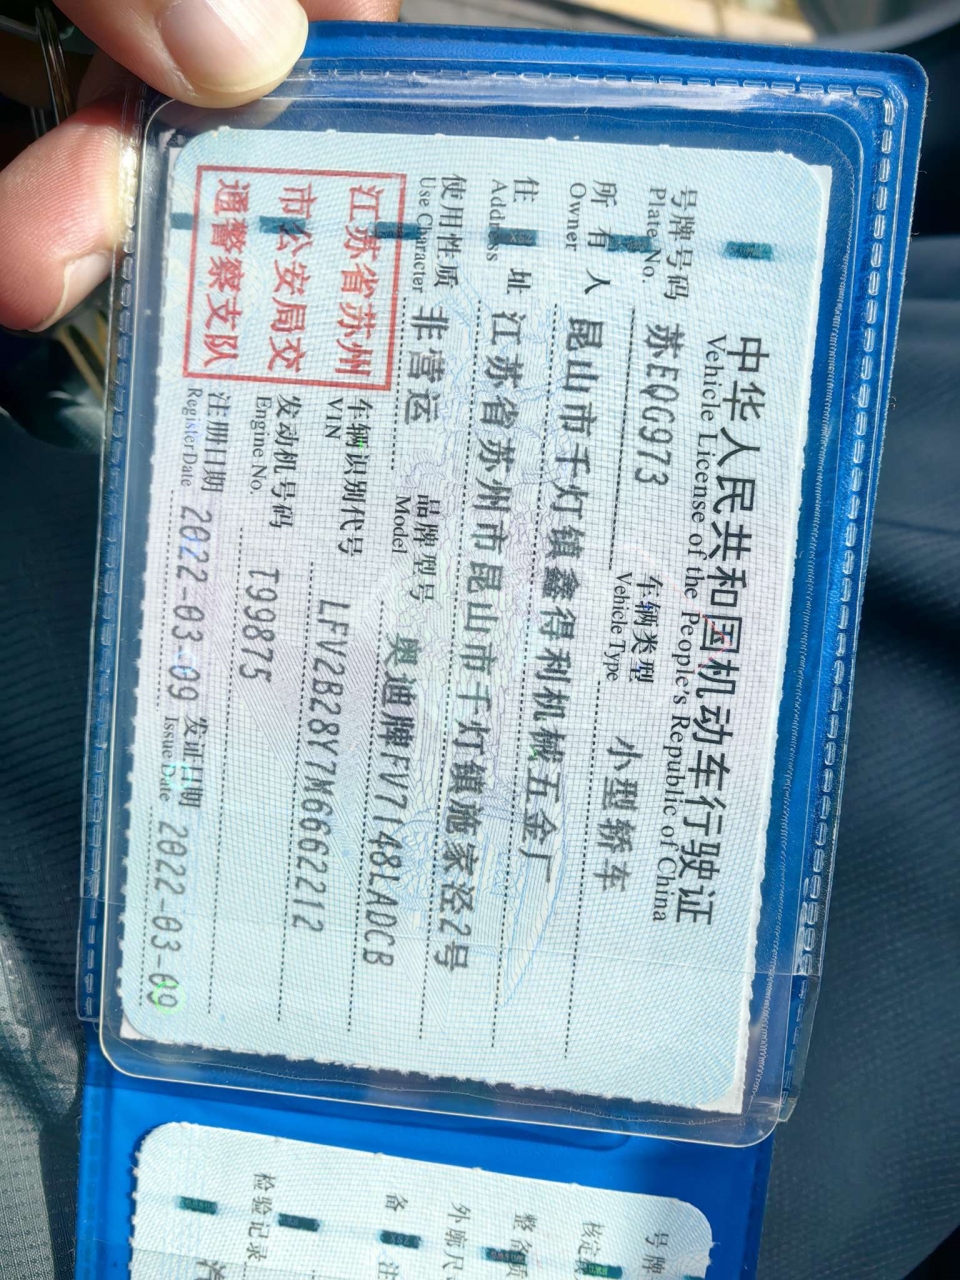 中华人民共和国机动车行驶证
Vehicle License of the People's Republic of China
号牌号码 苏EQG973 车辆类型 小型轿车
Plate No. Vehicle Type
所有人 昆山市千灯镇鑫得利机械五金厂
Owner
住址 江苏省苏州市昆山市千灯镇施家泾2号
Address
使用性质 非营运 品牌型号 奥迪牌FV7148LADCB
Use Character Model
江苏省苏州
市公安局交
通警察支队
车辆识别代号 LFV2B28Y7M6662212
VIN
发动机号码 T99875
Engine No.
注册日期 2022-03-09 发证日期 2022-03-09
Register Date Issue Date
号牌
核定
整备质
外廓尺
备 注
检验记录